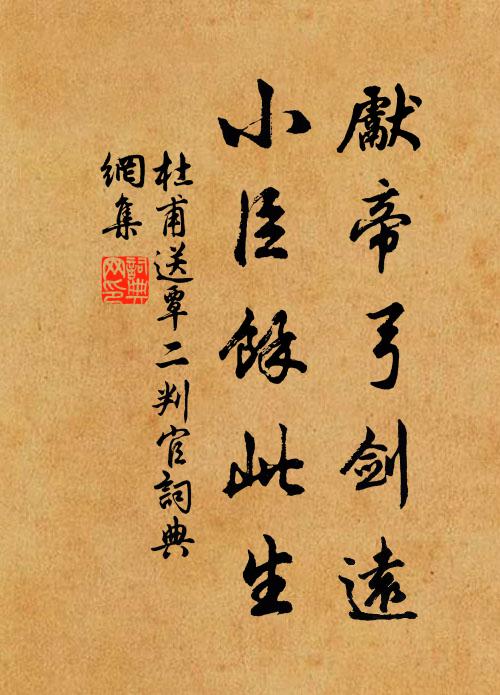 獻帝弓劍遠
小臣餘此生
杜甫送覃二判官詞典
網集
詞典
网印